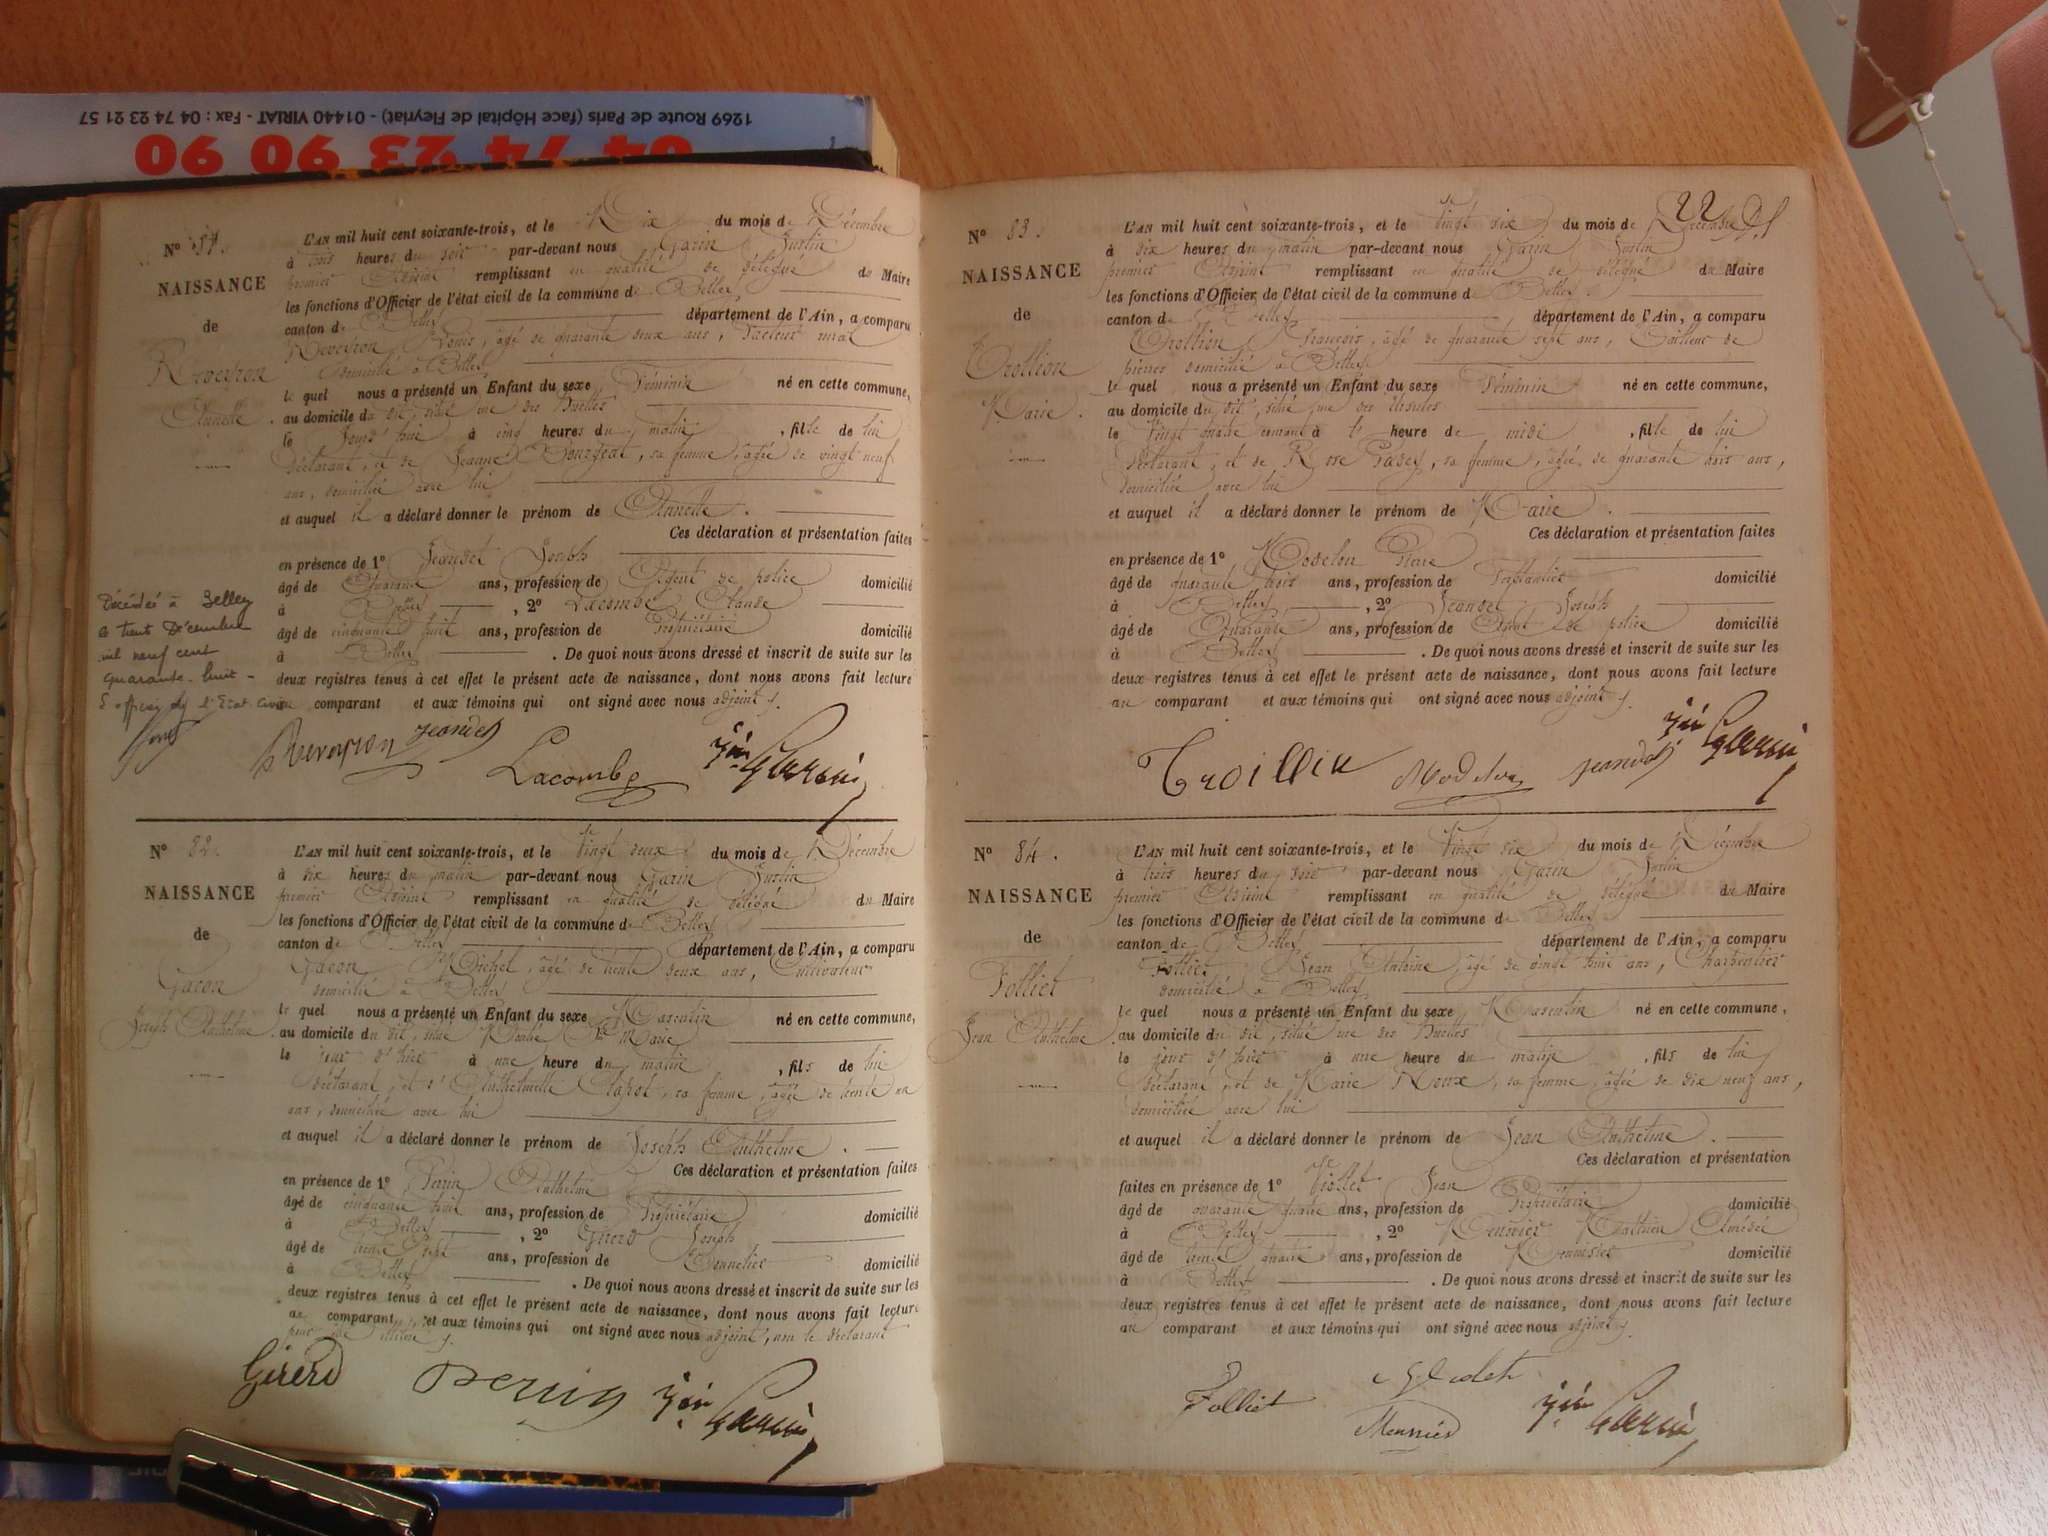 1269 Route de Paris (face Hôpital de Fleyriat) - 01440 VIRIAT - Fax : 04 74 23 21 57
04 74 23 90 90
N° 81.
NAISSANCE
de
Reveyron
Annette.
L'AN mil huit cent soixante-trois, et le Dix du mois de Décembre
à trois heures du soir par-devant nous Garin Justin
premier Adjoint remplissant en qualité de délégué du Maire
les fonctions d'Officier de l'état civil de la commune de Belley
canton de Belley département de l'Ain, a comparu
Reveyron Louis, âgé de quarante deux ans, facteur rural
domicilié à Belley
le quel nous a présenté un Enfant du sexe Féminin né en cette commune,
au domicile du dit, situé rue des Huettes
le jour d'hier à cinq heures du matin, fille de lui
déclarant, et de Jeanne Bourgeat, sa femme, âgée de vingt neuf
ans, domiciliée avec lui
et auquel il a déclaré donner le prénom de Annette.
Ces déclaration et présentation faites
en présence de 1° Jeandet Joseph
âgé de Quarante ans, profession de Agent de police domicilié
à Belley, 2° Lacombe Claude
âgé de cinquante huit ans, profession de Propriétaire domicilié
à Belley. De quoi nous avons dressé et inscrit de suite sur les
deux registres tenus à cet effet le présent acte de naissance, dont nous avons fait lecture
au comparant et aux témoins qui ont signé avec nous adjoint
Décédée à Belley
le trente Décembre
mil neuf cent
quarante-huit -
L'officier de l'Etat Civil
Reveyron Jeandet
Lacombe Jin Garin
N° 82.
NAISSANCE
de
Gacon
Joseph Anthelme.
L'AN mil huit cent soixante-trois, et le Vingt deux du mois de Décembre
à dix heures du matin par-devant nous Garin Justin
premier Adjoint remplissant en qualité de délégué du Maire
les fonctions d'Officier de l'état civil de la commune de Belley
canton de Belley département de l'Ain, a comparu
Gacon Michel, âgé de trente deux ans, Cultivateur
domicilié à Belley
le quel nous a présenté un Enfant du sexe Masculin né en cette commune,
au domicile du dit, situé Ste Marie
le jour d'hier à une heure du matin, fils de lui
déclarant, et d'Anthelmette sa femme, âgée de trente un
ans, domiciliée avec lui
et auquel il a déclaré donner le prénom de Joseph Anthelme.
Ces déclaration et présentation faites
en présence de 1° Perrin Anthelme
âgé de cinquante huit ans, profession de Propriétaire domicilié
à Belley, 2° Girerd Joseph
âgé de trente sept ans, profession de domicilié
à Belley. De quoi nous avons dressé et inscrit de suite sur les
deux registres tenus à cet effet le présent acte de naissance, dont nous avons fait lecture
au comparant et aux témoins qui ont signé avec nous adjoint, non le déclarant
pour être illettré
Girerd Perrin Jin Garin
N° 83.
NAISSANCE
de
Trollion
Marie.
L'AN mil huit cent soixante-trois, et le Vingt six du mois de Décembre
à dix heures du matin par-devant nous Garin Justin
premier Adjoint remplissant en qualité de délégué du Maire
les fonctions d'Officier de l'état civil de la commune de Belley
canton de Belley département de l'Ain, a comparu
Trollion François, âgé de quarante sept ans, Tailleur de
pierres domicilié à Belley
le quel nous a présenté un Enfant du sexe Féminin né en cette commune,
au domicile du dit, situé, rue des Ursules
le Vingt quatre courant à l' heure de midi, fille de lui
déclarant, et de Rose sa femme, âgée de quarante trois ans,
domiciliée avec lui
et auquel il a déclaré donner le prénom de Marie.
Ces déclaration et présentation faites
en présence de 1° Modelon Pierre
âgé de quarante trois ans, profession de Ferblantier domicilié
à Belley, 2° Jeandet Joseph
âgé de Quarante ans, profession de Agent de police domicilié
à Belley. De quoi nous avons dressé et inscrit de suite sur les
deux registres tenus à cet effet le présent acte de naissance, dont nous avons fait lecture
au comparant et aux témoins qui ont signé avec nous adjoint
Troillin Modelon Jeandet Jin Garin
N° 84.
NAISSANCE
de
Folliet
Jean Anthelme.
L'AN mil huit cent soixante-trois, et le Vingt six du mois de Décembre
à trois heures du soir par-devant nous Garin Justin
premier Adjoint remplissant en qualité de délégué du Maire
les fonctions d'Officier de l'état civil de la commune de Belley
canton de Belley département de l'Ain, a comparu
Folliet Jean Antoine, âgé de vingt huit ans, Charpentier
domicilié à Belley
le quel nous a présenté un Enfant du sexe Masculin né en cette commune,
au domicile du dit, situé rue des Huettes
le jour d'hier à une heure du matin, fils de lui
déclarant, et de Marie Roux, sa femme, âgée de dix neuf ans,
domiciliée avec lui
et auquel il a déclaré donner le prénom de Jean Anthelme.
Ces déclaration et présentation
faites en présence de 1° Viollet Jean
âgé de quarante quatre ans, profession de Propriétaire domicilié
à Belley, 2° Meunier Mathieu Amédée
âgé de trente quatre ans, profession de domicilié
à Belley. De quoi nous avons dressé et inscrit de suite sur les
deux registres tenus à cet effet le présent acte de naissance, dont nous avons fait lecture
au comparant et aux témoins qui ont signé avec nous adjoint
Folliet Meunier Jin Garin